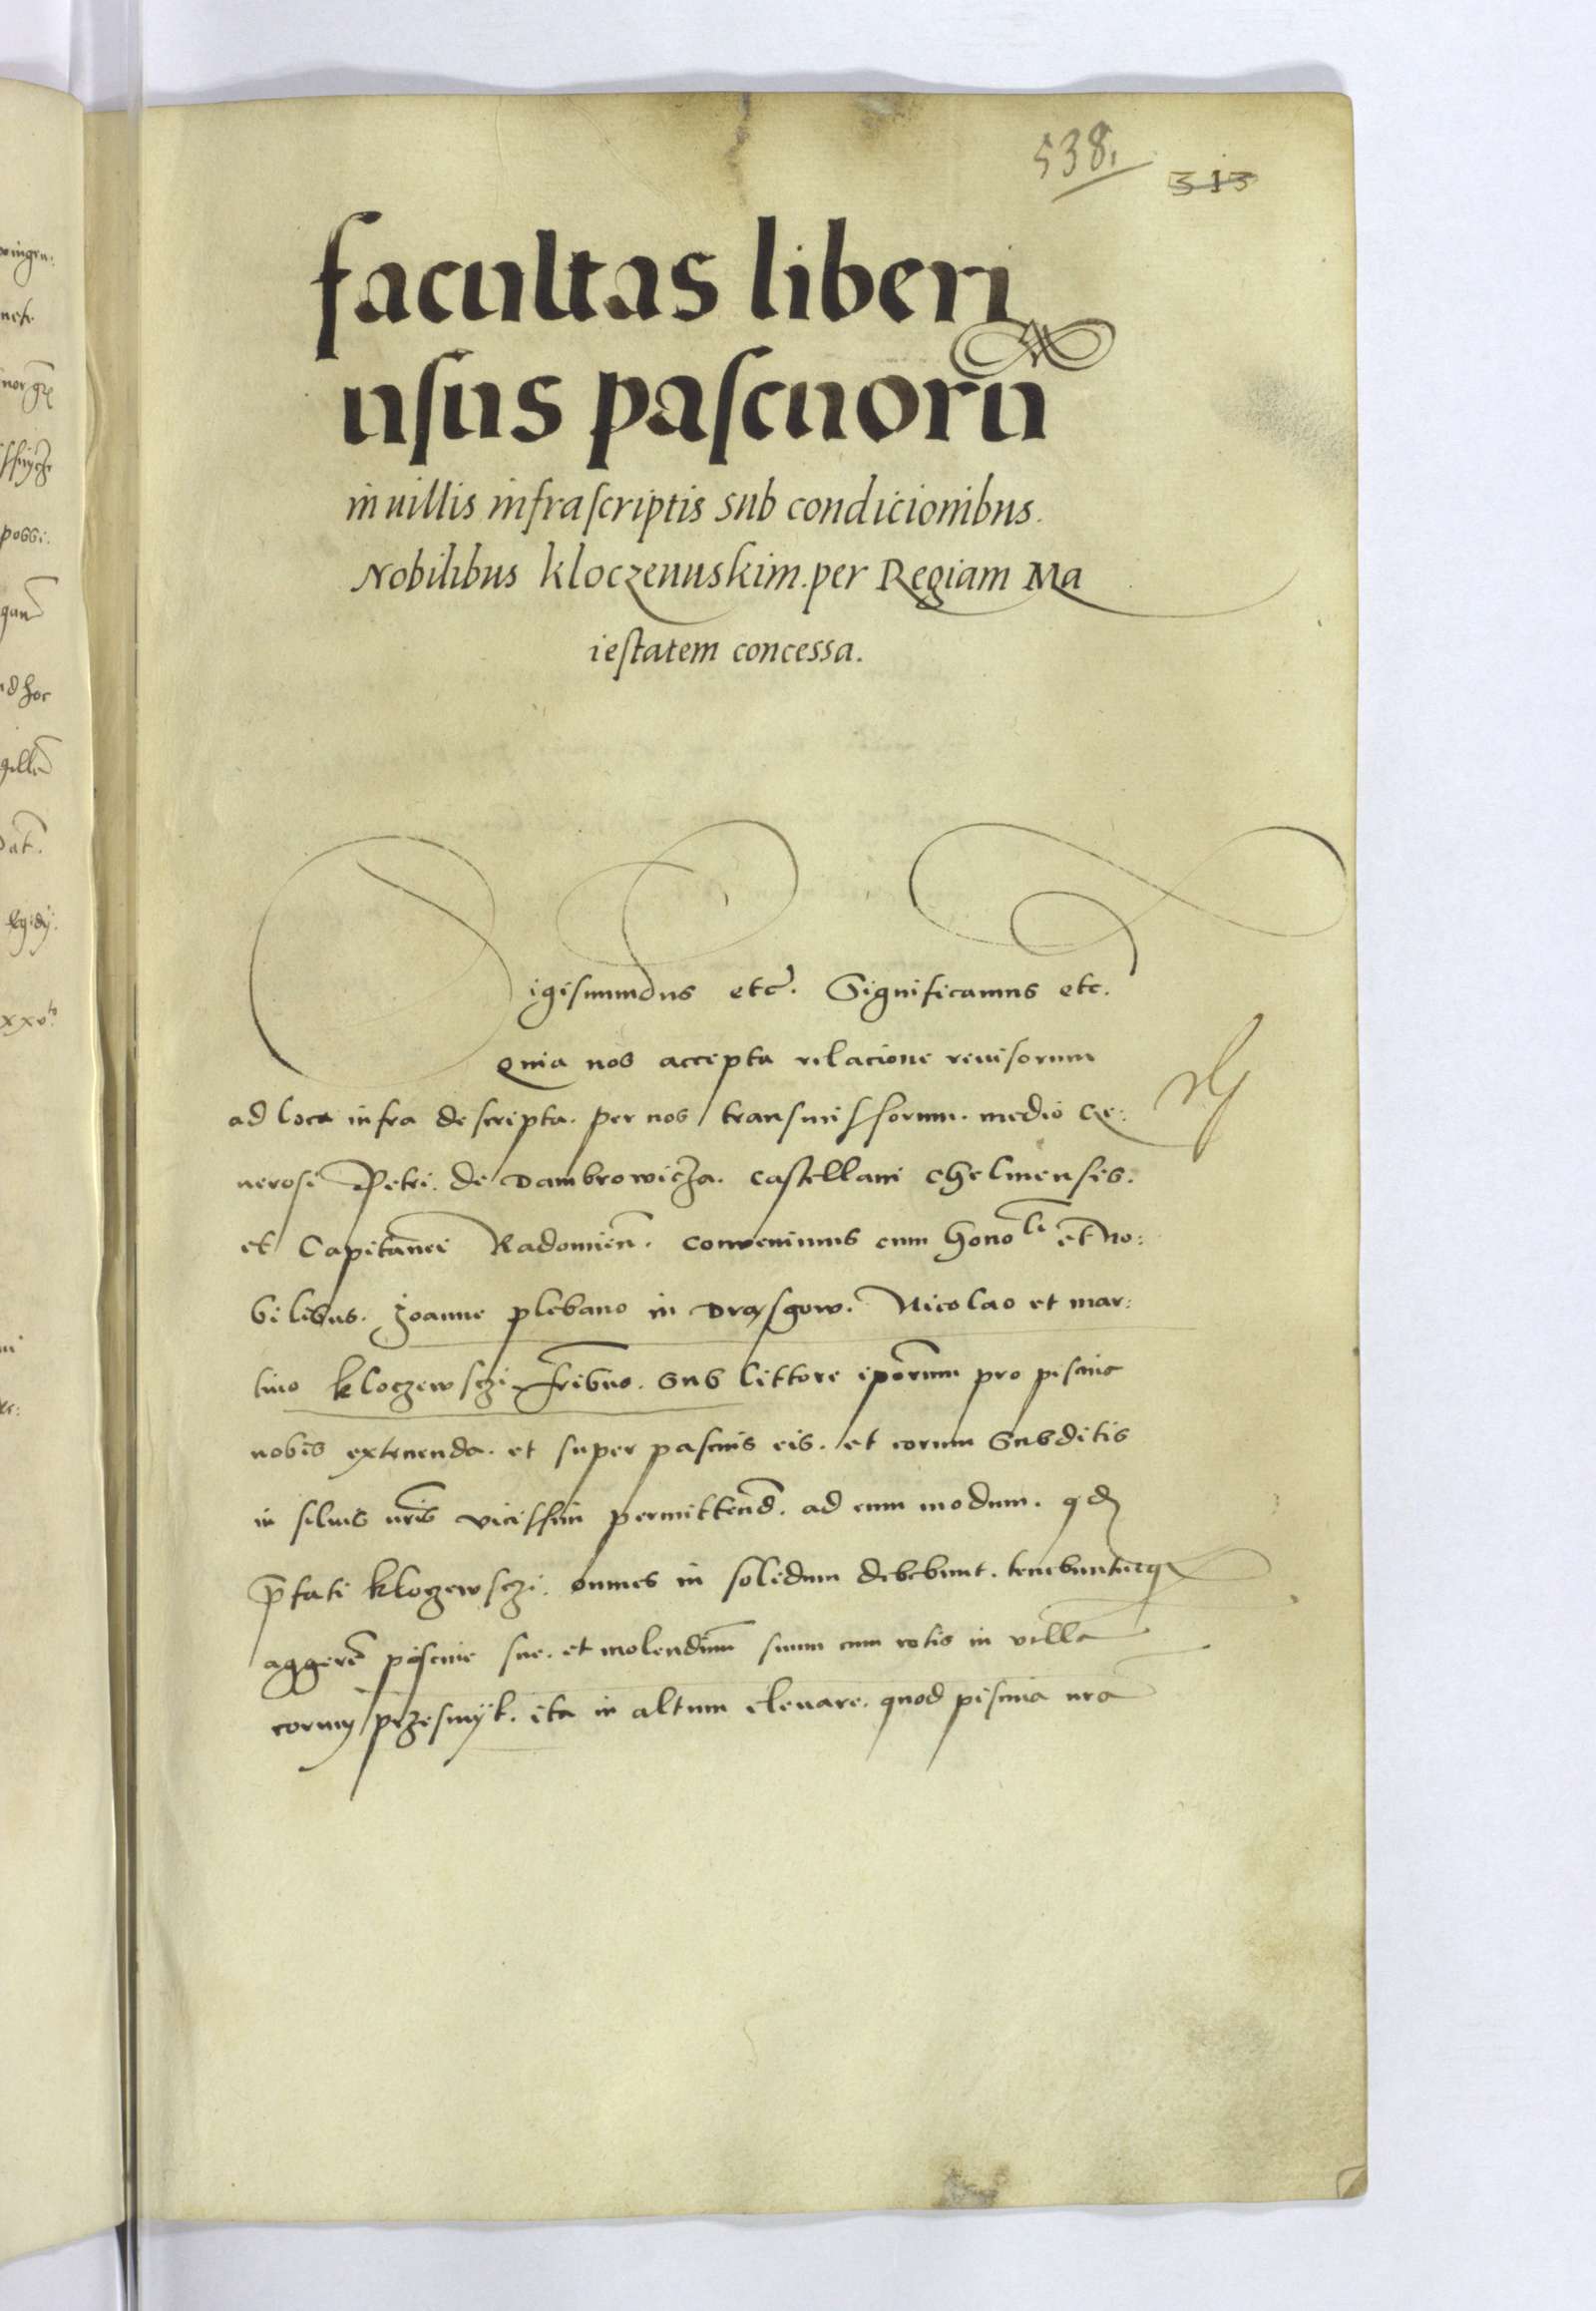 538.
313
facultas liberi
usus pascuorū
in uillis infrascriptis sub condicionibus.
Nobilibus kloczeuuskim. per Regiam Ma
iestatem concessa.
igismundus etc. Significamus etc.
Quia nos accepta relacione reuisorum
ad loca infra descripta. per nos transmissorum. medio Ge:
nerosi Petri. de Dambrowicza. Castellani Chelmensis.
et Capitanei Radomieñ. conuenimus cum hono^li et No:
bilibus. Joanne plebano in Drasgow. Nicolao et mar:
tino kloczewsczi fribus. sub littore ipōrum pro piscina
nobis extruenda. et super pascuis eis. et eorum Subditis
in siluis nris vicissim permittend. ad eum modum. qd
p̄fati kloczewsczi. omnes in solidum debebunt. tenebunturq
aggerē piscine sue. et molendinū suum cum rotis in villa
eorum przesmyk. ita in altum eleuare. quod piscina nra